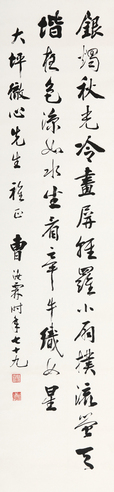 銀燭秋光冷畫屏輕羅小扇撲流螢天
階夜色涼如水坐看牽牛織女星
大坪徹心先生雅正
曹汝霖時年七十九